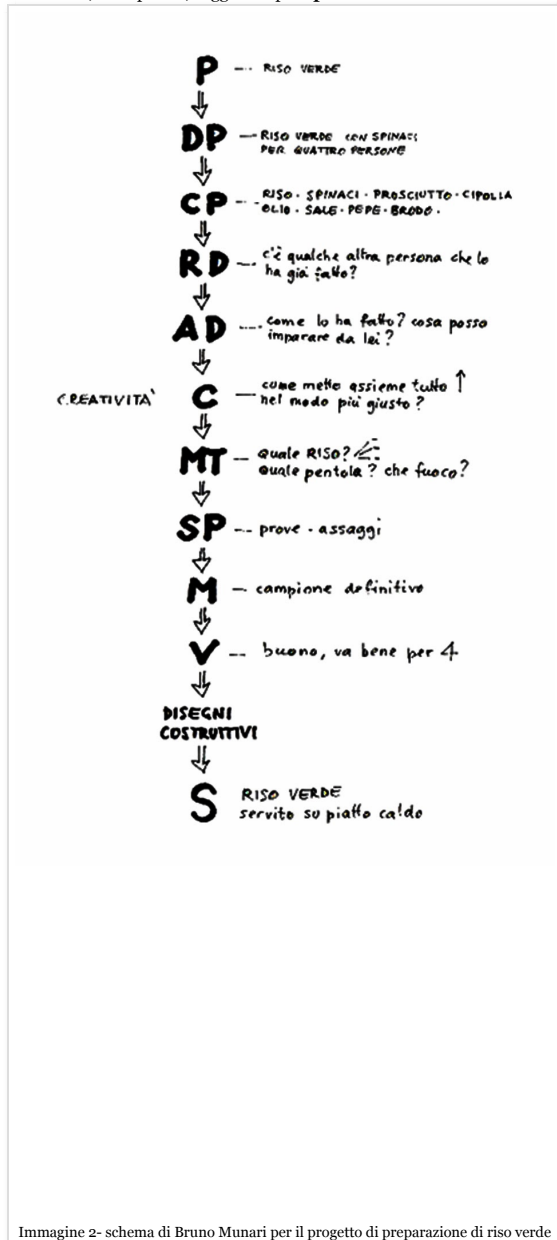 P --- RISO VERDE
DP — RISO VERDE CON SPINACI
PER QUATTRO PERSONE
CP --- RISO · SPINACI · PROSCIUTTO · CIPOLLA
OLIO · SALE · PEPE · BRODO ·
RD --- c'è qualche altra persona che lo
ha già fatto?
AD --- come lo ha fatto? cosa posso
imparare da lei?
CREATIVITA' C — come metto assieme tutto ↑
nel modo più giusto?
MT — quale RISO?
quale pentola? che fuoco?
SP --- prove - assaggi
M --- campione definitivo
V --- buono, va bene per 4
DISEGNI
COSTRUTTIVI
S RISO VERDE
servito su piatto caldo
Immagine 2- schema di Bruno Munari per il progetto di preparazione di riso verde